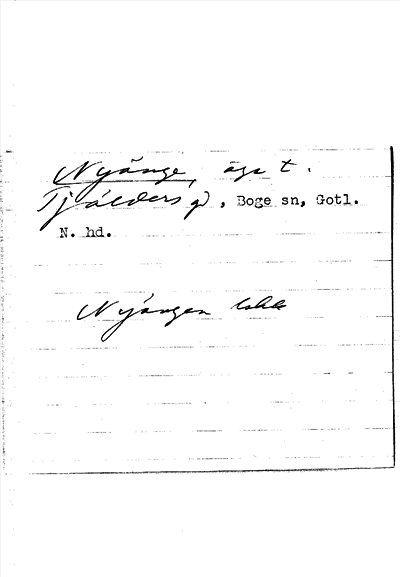 Nyänge, äga t.
Tjälders gd, Boge sn, Gotl.
N. hd.
Nyängen